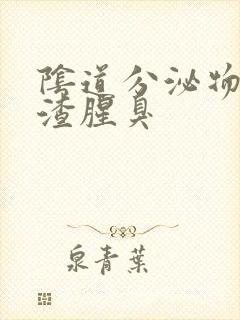 陰道分泌物
渣腥臭
泉青葉